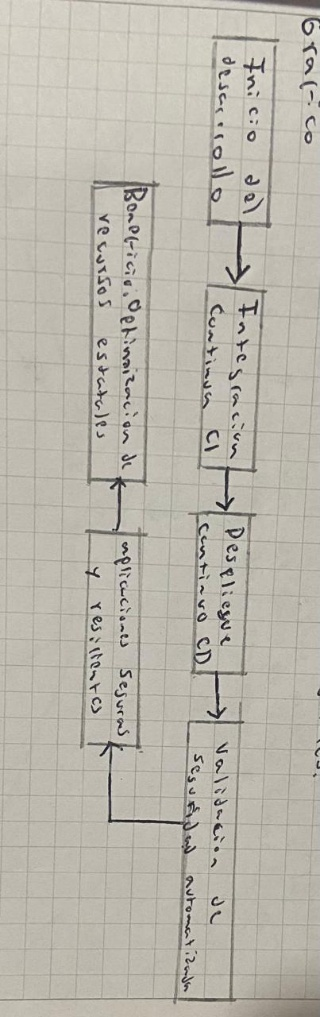 Grafico
Inicio del
desarrollo
Integracion
continua CI
Despliegue
continuo CD
Validacion de
seguridad automatizada
aplicaciones seguras
y resilientes
Beneficio: Optimizacion de
recursos estatales